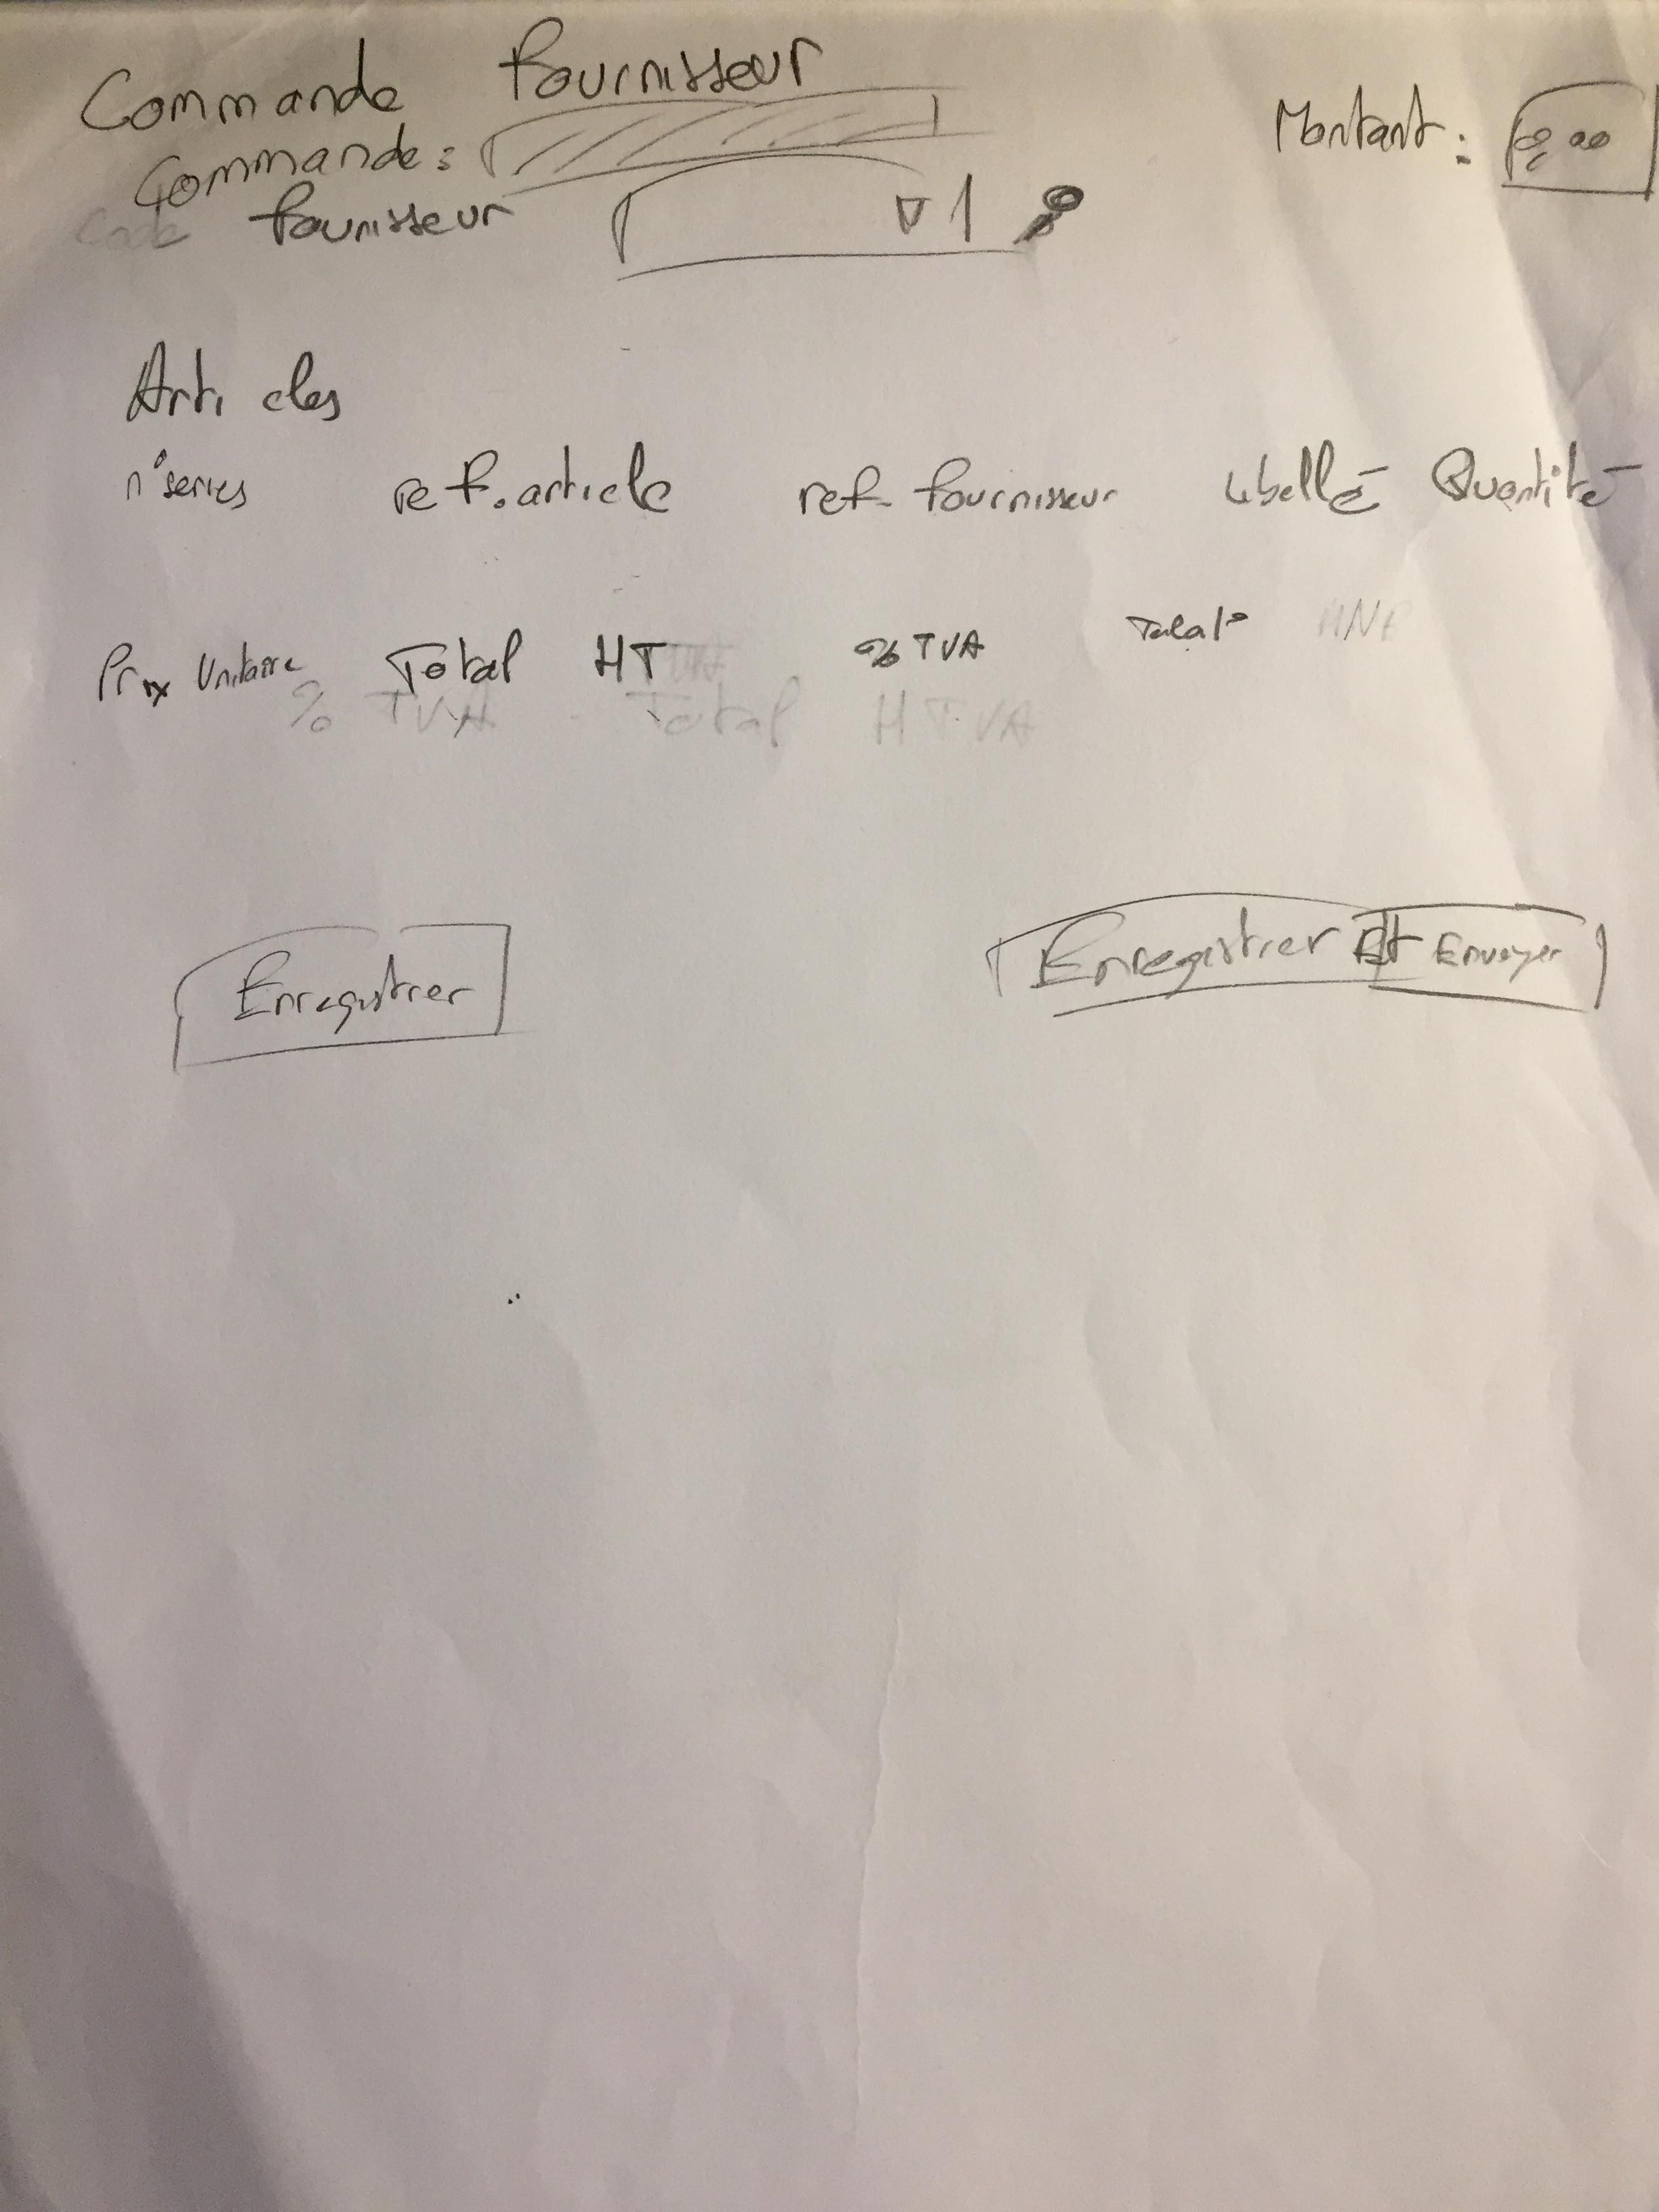 Commande fournisseur
Commande :
Montant : 0,00
Code fournisseur
Articles
n° series ref. article ref. fournisseur libellé Quantité
Prix Unitaire Total HT % TVA
% TVA Total HTVA
Enregistrer
Enregistrer Et Envoyer